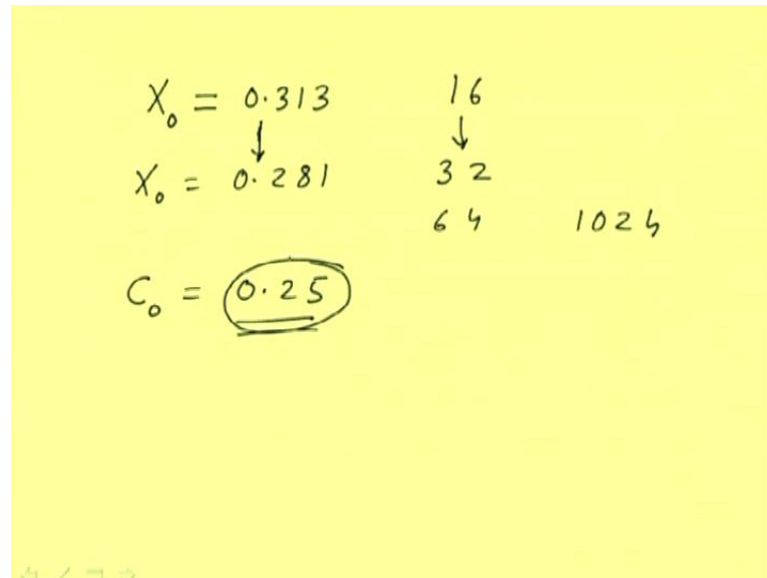 X₀ = 0.313 16
↓ ↓
X₀ = 0.281 32
64 1024
C₀ = 0.25